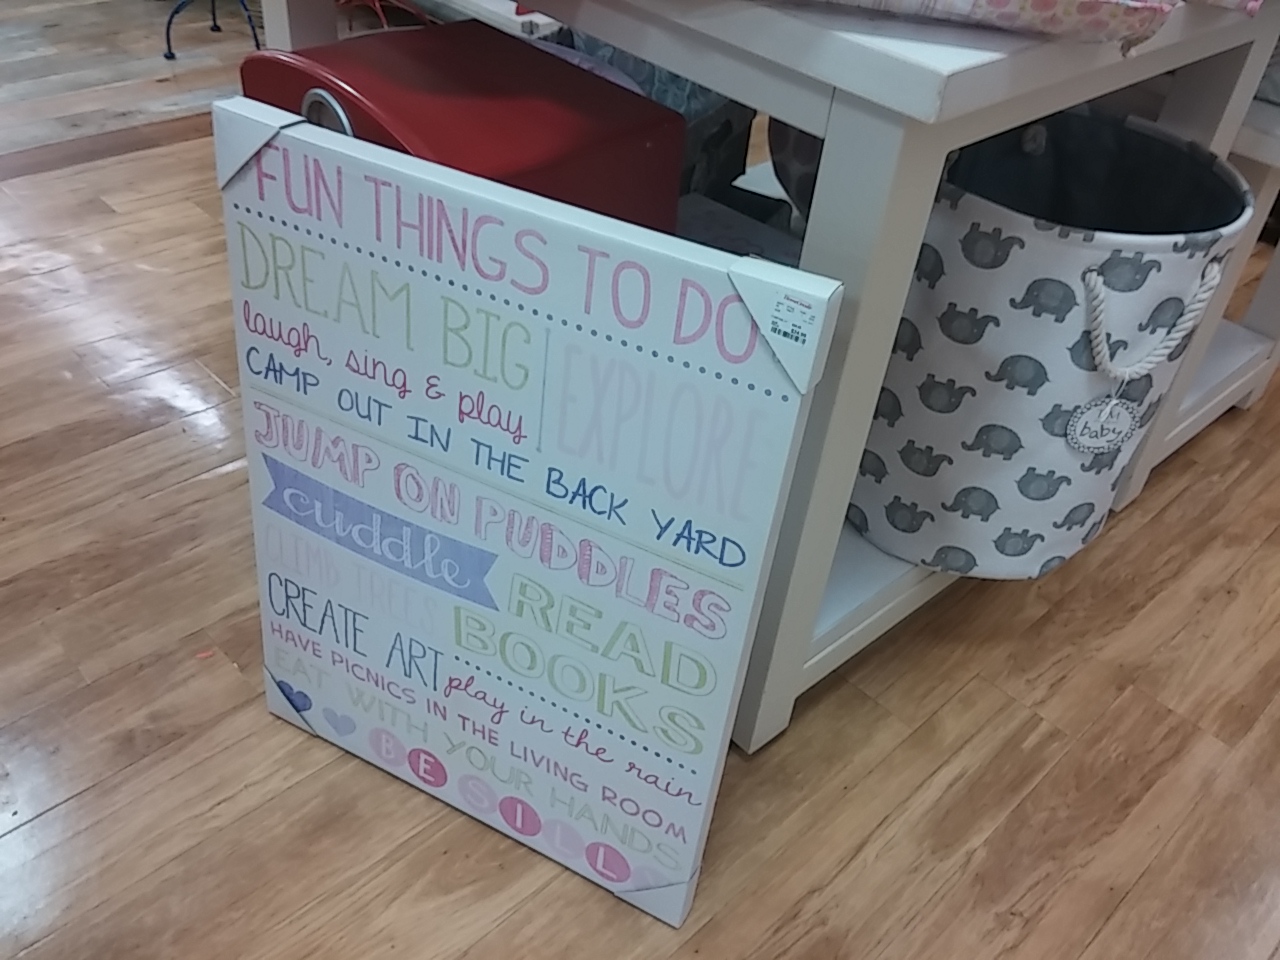 FUN THINGS TO DO
DREAM BIG
laugh, sing & play
EXPLORE
CAMP OUT IN THE BACK YARD
JUMP ON PUDDLES
cuddle
READ
BOOKS
CLIMB TREES
CREATE ART
play in the rain
HAVE PICNICS IN THE LIVING ROOM
EAT WITH YOUR HANDS
BE SILL
baby